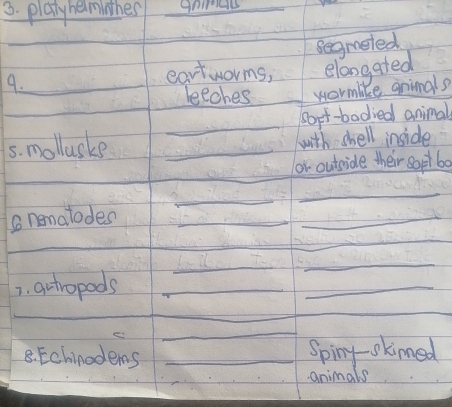 3. platyhelminthes animals
segmeted
9. eartworms, elongated
leeches wormlike animals
soft-bodied animals
5. mollusks with shell inside
or outside their soft bo
6 nematodes
7. artropods
8. Echinodems Spiny-skinned
animals